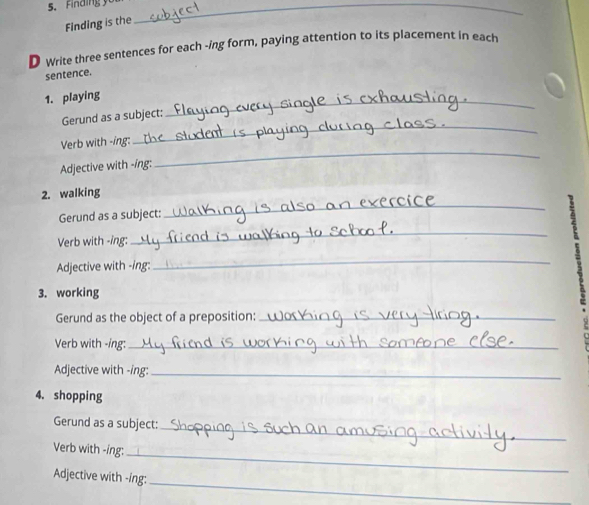 5. Finding
Finding is the subject
D Write three sentences for each -ing form, paying attention to its placement in each
sentence.
1. playing
Gerund as a subject: Playing every single is exhausting.
Verb with -ing: the student is playing during class.
Adjective with -ing:
2. walking
Gerund as a subject: Walking is also an exercice
Verb with -ing: My friend is walking to school.
Adjective with -ing:
3. working
Gerund as the object of a preposition: Working is very tiring.
Verb with -ing: My friend is working with someone else.
Adjective with -ing:
4. shopping
Gerund as a subject: Shopping is such an amusing activity.
Verb with -ing:
Adjective with -ing:
CEC inc. • Reproduction prohibited